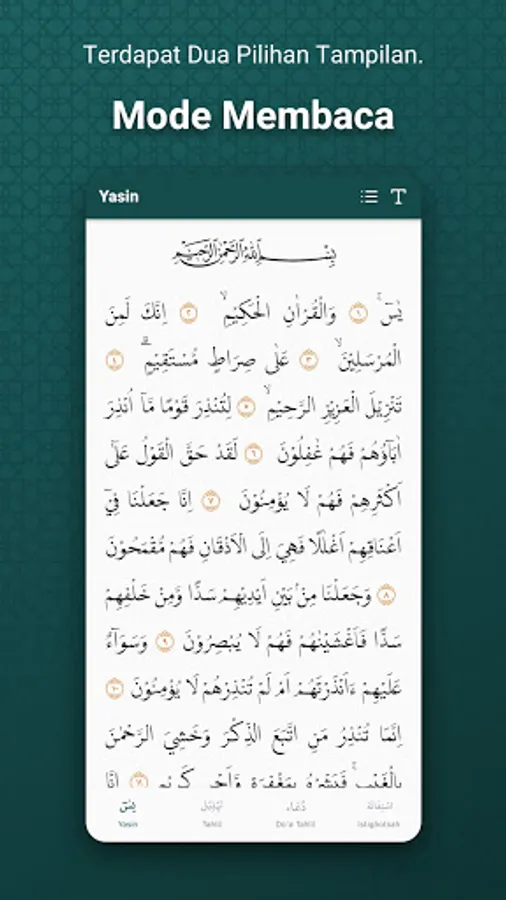 Terdapat Dua Pilihan Tampilan.
Mode Membaca
Yasin
بِسْــــــمِ اللهِ الرَّحْمٰنِ الرَّحِيْمِ
يٰسۤ ۚ ١ وَالْقُرْاٰنِ الْحَكِيْمِۙ ٢ اِنَّكَ لَمِنَ
الْمُرْسَلِيْنَۙ ٣ عَلٰى صِرَاطٍ مُّسْتَقِيْمٍۗ ٤
تَنْزِيْلَ الْعَزِيْزِ الرَّحِيْمِۙ ٥ لِتُنْذِرَ قَوْمًا مَّآ اُنْذِرَ
اٰبَاۤؤُهُمْ فَهُمْ غٰفِلُوْنَ ٦ لَقَدْ حَقَّ الْقَوْلُ عَلٰٓى
اَكْثَرِهِمْ فَهُمْ لَا يُؤْمِنُوْنَ ٧ اِنَّا جَعَلْنَا فِيْٓ
اَعْنَاقِهِمْ اَغْلٰلًا فَهِيَ اِلَى الْاَذْقَانِ فَهُمْ مُّقْمَحُوْنَ
٨ وَجَعَلْنَا مِنْۢ بَيْنِ اَيْدِيْهِمْ سَدًّا وَّمِنْ خَلْفِهِمْ
سَدًّا فَاَغْشَيْنٰهُمْ فَهُمْ لَا يُبْصِرُوْنَ ٩ وَسَوَاۤءٌ
عَلَيْهِمْ ءَاَنْذَرْتَهُمْ اَمْ لَمْ تُنْذِرْهُمْ لَا يُؤْمِنُوْنَ ١٠
اِنَّمَا تُنْذِرُ مَنِ اتَّبَعَ الذِّكْرَ وَخَشِيَ الرَّحْمٰنَ
بِالْغَيْبِۚ فَبَشِّرْهُ بِمَغْفِرَةٍ وَّاَجْرٍ كَرِيْمٍ ١١ اِنَّا
يٰسۤ تَهْلِيْل دُعَاء اِسْتِغَاثَة
Yasin Tahlil Do'a Tahlil Istighotsah